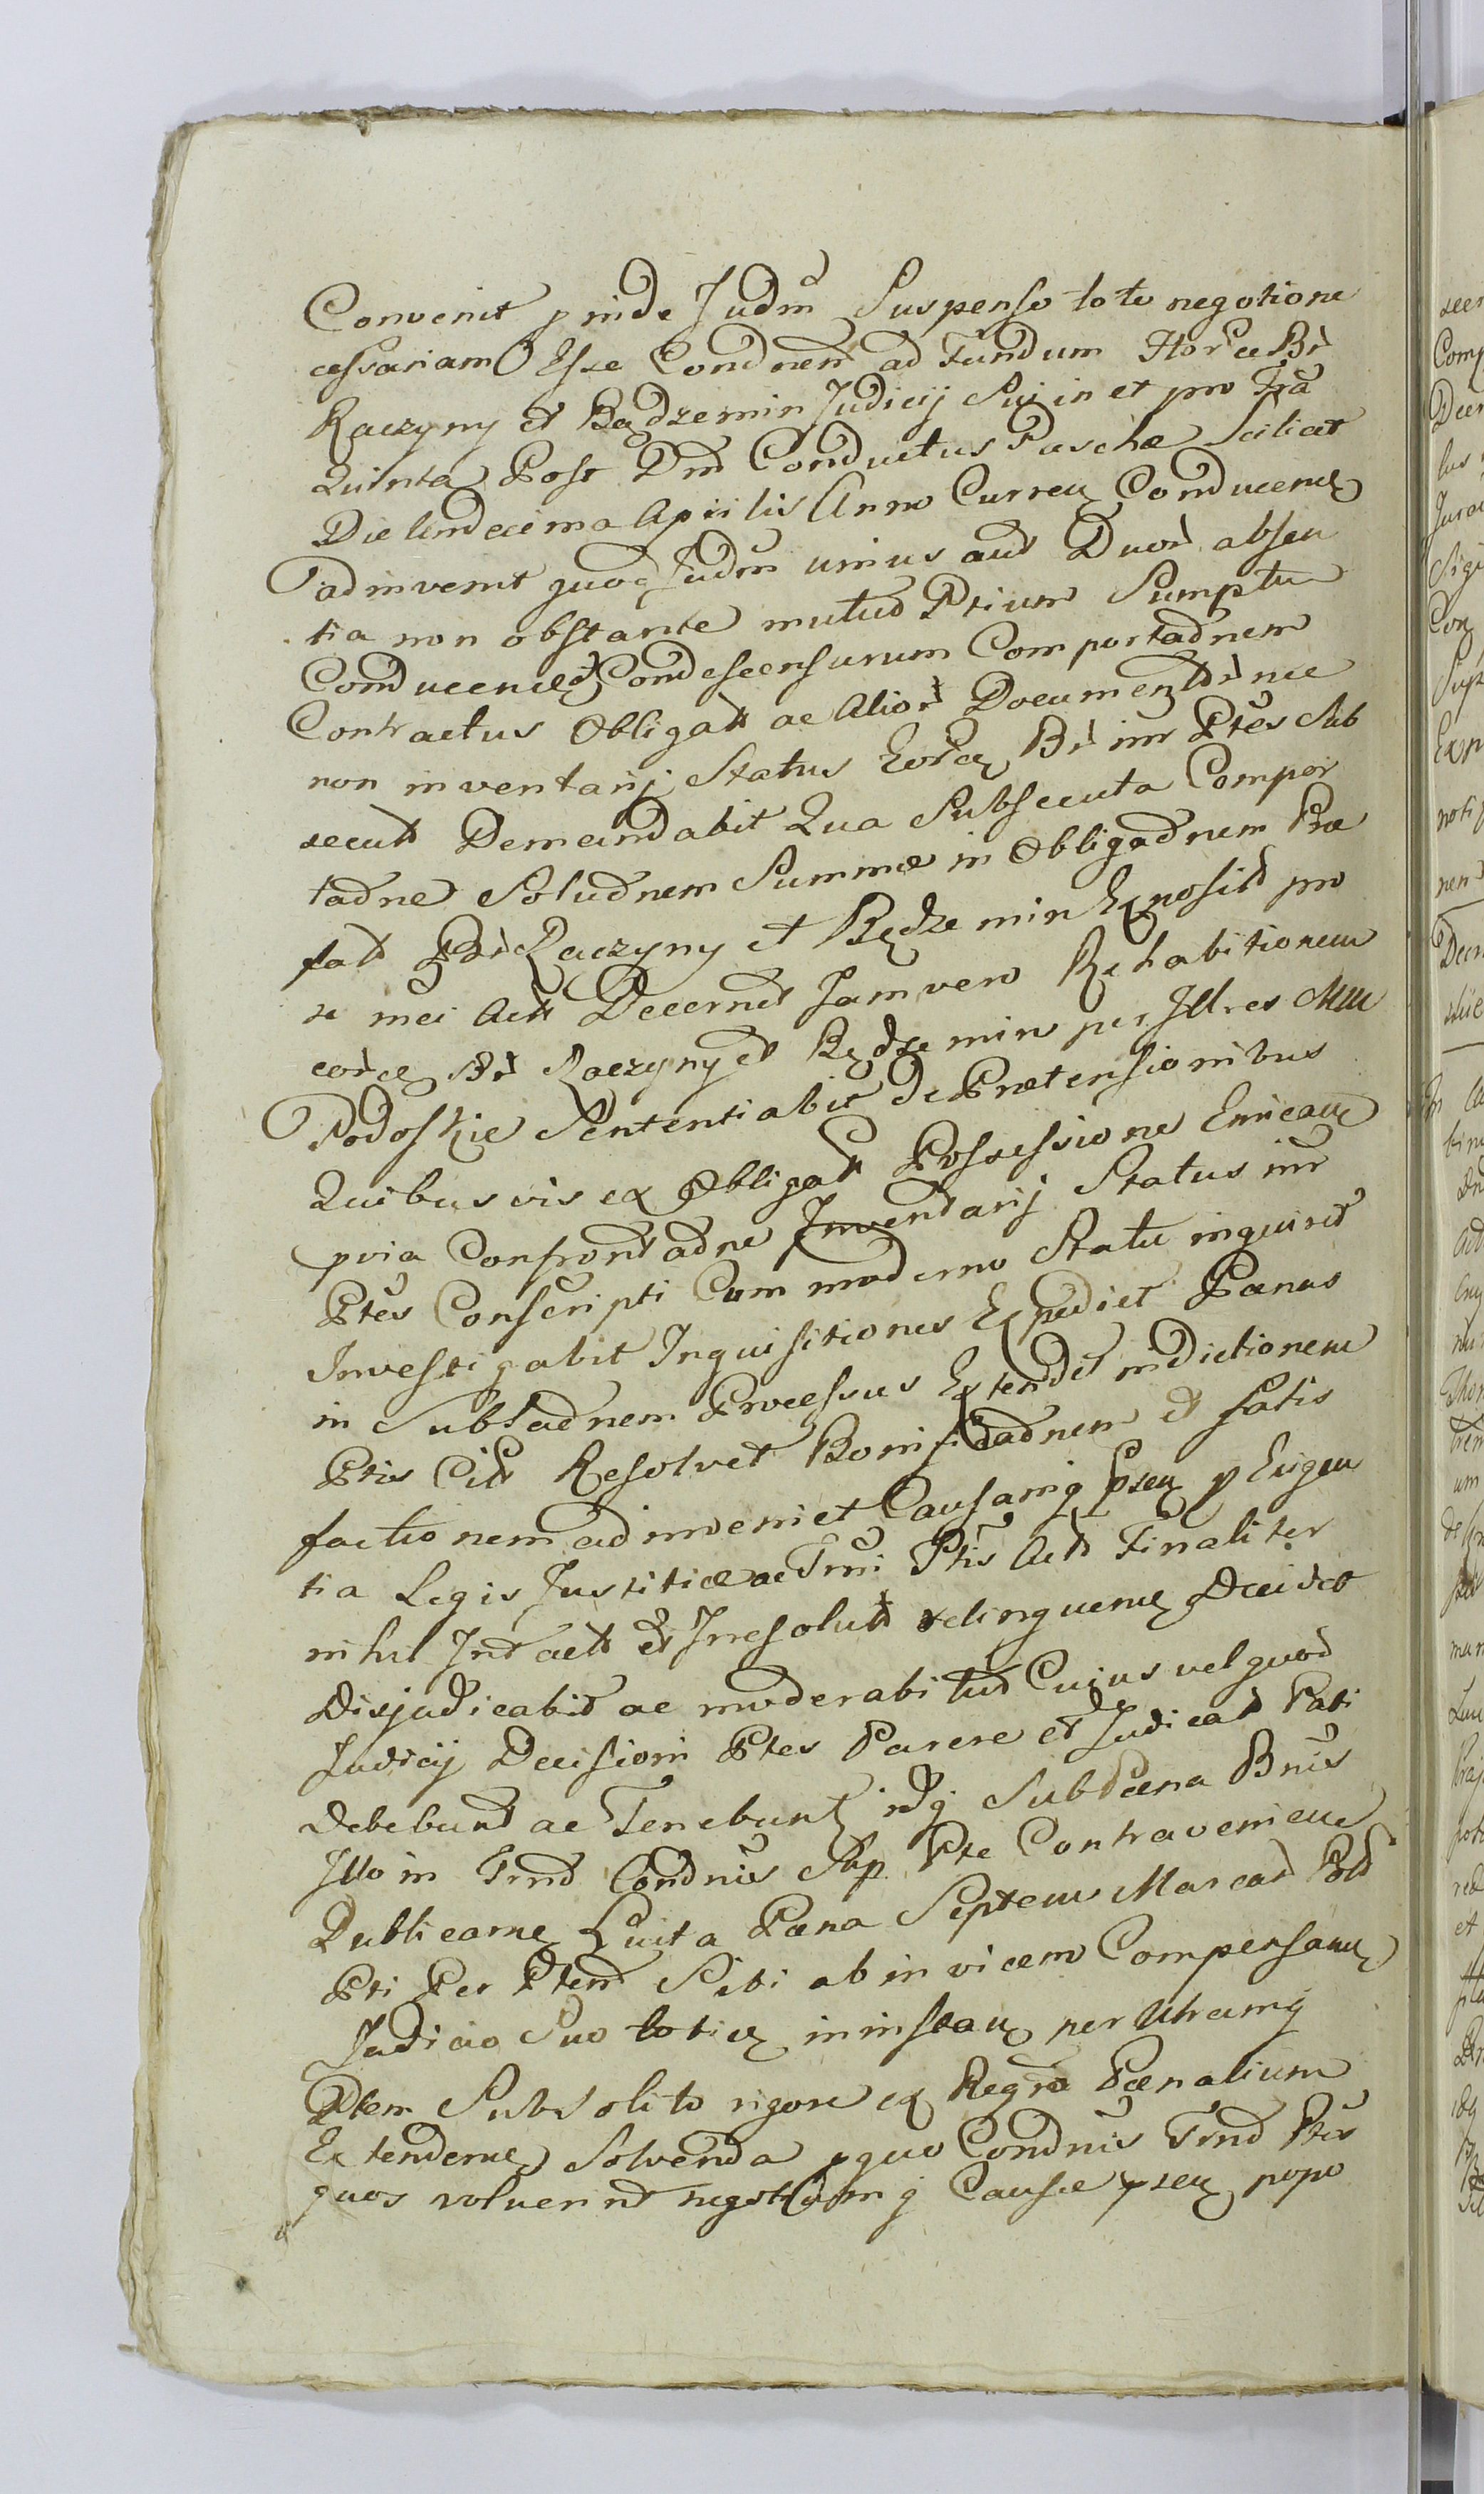 Convenit p inde Judm Suspenso toto negotio ne
cessariam Esse Condnem ad Fundum Hor ce Br
Raczyny et Bądzemin Judicij Sui in et pro Fra
Quinta Post Dm Conductus Paschæ Scilicet
Die Undecima Aprilis Anno Curren Conducene
adinvenit quoq Judm unius aut Duor absen
tia non obstante mutuo Ptium Sumptu
Conducene Condescensurum Comportadnem
Contractus Obligat ac Alior Documentor nec
non inventarij Status Eor ce Br inr Ptes Sub
secut Demandabit Qua Subsecuta Compor
tadne Soludnem Summæ in Obligadnem Præ
fat Br Raczyny et Bądzemin Exposit pro
se mei Act Decernet Jam vero Rehabitionem
eor ce Br Raczyny et Bądzemin per Illres MM
Podoskie Sententiabit de Prætensionibus
Quibusvis ex Obligat Possessione Enican
pvia Confrontadne Inventarij Status inr
Ptes Conscripti Cum moderno Statu inquiret
Investigabit Inquisitiones Expediet Pænas
in Subladnem Processus Extendet indictionem
Ptis Cit Resolvet Bonificadnem et satis
factionem adinveniet Causamq psen p Exigen
tia Legis Justitiæ ac Trni Ptis Act Finaliter
nihil Intact et Irresolut relinquene Decidet
Disjudicabit ac moderabitur Cujus vel quod
Judicij Decisioni Ptes Parere et Judicat Pati
debebunt ac Tenebunt idq Sub Pæna Bnis
Illo in Trno Condnis Sup Pte Contravenien
Publicane Luita Pæna Septem Marcar Pol
Pti Per Ptem Sibi ab invicem Compensan
Judicio Suo toties in instan per Utramq
Ptem Sub solito rigore ex Regro Pænalium
Extendene Solvenda p quo Condnis Trno Ptes
quos voluerint negotiumq Causæ psen popo